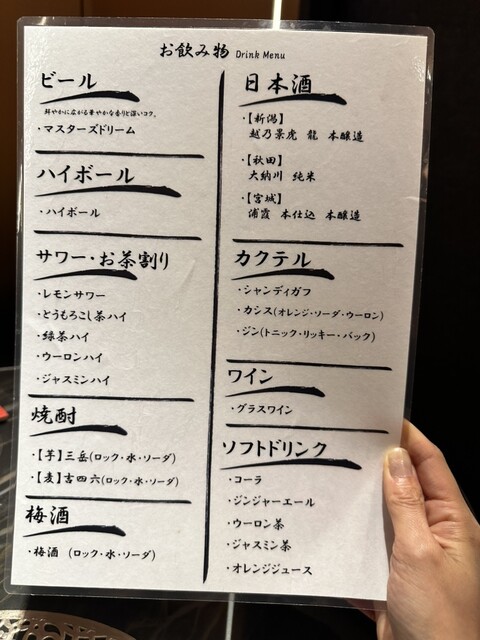 お飲み物 Drink Menu
ビール
鮮やかに広がる華やかな香りと深いコク。
・マスターズドリーム
ハイボール
・ハイボール
サワー・お茶割り
・レモンサワー
・とうもろこし茶ハイ
・緑茶ハイ
・ウーロンハイ
・ジャスミンハイ
焼酎
・【芋】三岳(ロック・水・ソーダ)
・【麦】吉四六(ロック・水・ソーダ)
梅酒
・梅酒 (ロック・水・ソーダ)
日本酒
・【新潟】
越乃景虎 龍 本醸造
・【秋田】
大納川 純米
・【宮城】
浦霞 本仕込 本醸造
カクテル
・シャンディガフ
・カシス(オレンジ・ソーダ・ウーロン)
・ジン(トニック・リッキー・バック)
ワイン
・グラスワイン
ソフトドリンク
・コーラ
・ジンジャーエール
・ウーロン茶
・ジャスミン茶
・オレンジジュース